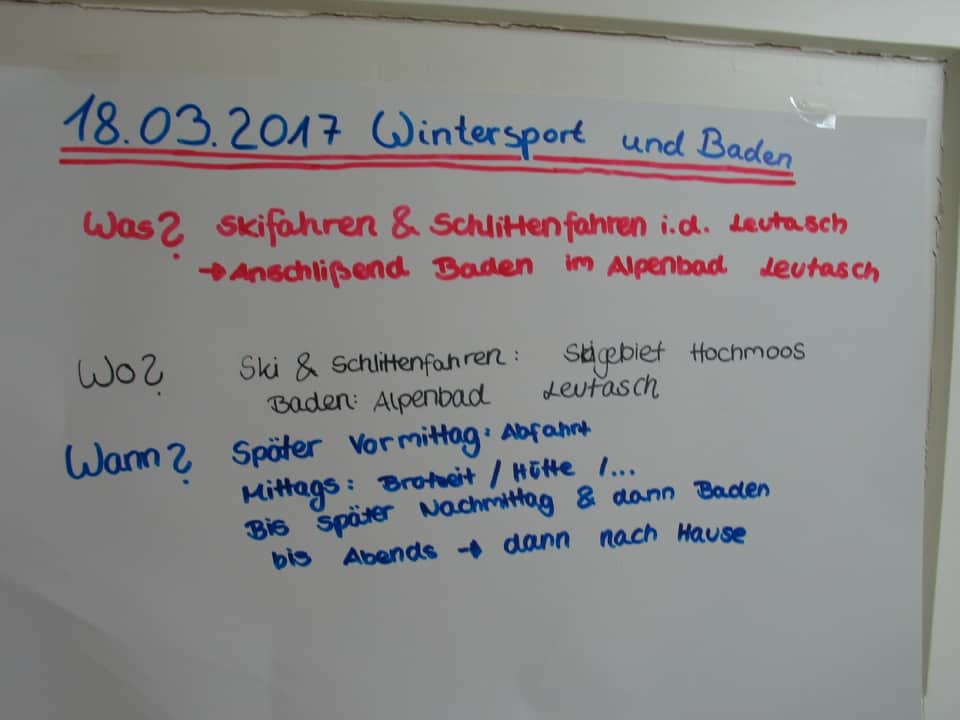 18.03.2017 Wintersport und Baden
Was? Skifahren & Schlittenfahren i.d. Leutasch
→ Anschlißend Baden im Alpenbad Leutasch
Wo? Ski & Schlittenfahren: Skigebiet Hochmoos
Baden: Alpenbad Leutasch
Wann? Später Vormittag: Abfahrt
Mittags: Brotzeit / Hütte /...
Bis später Nachmittag & dann Baden
bis Abends → dann nach Hause